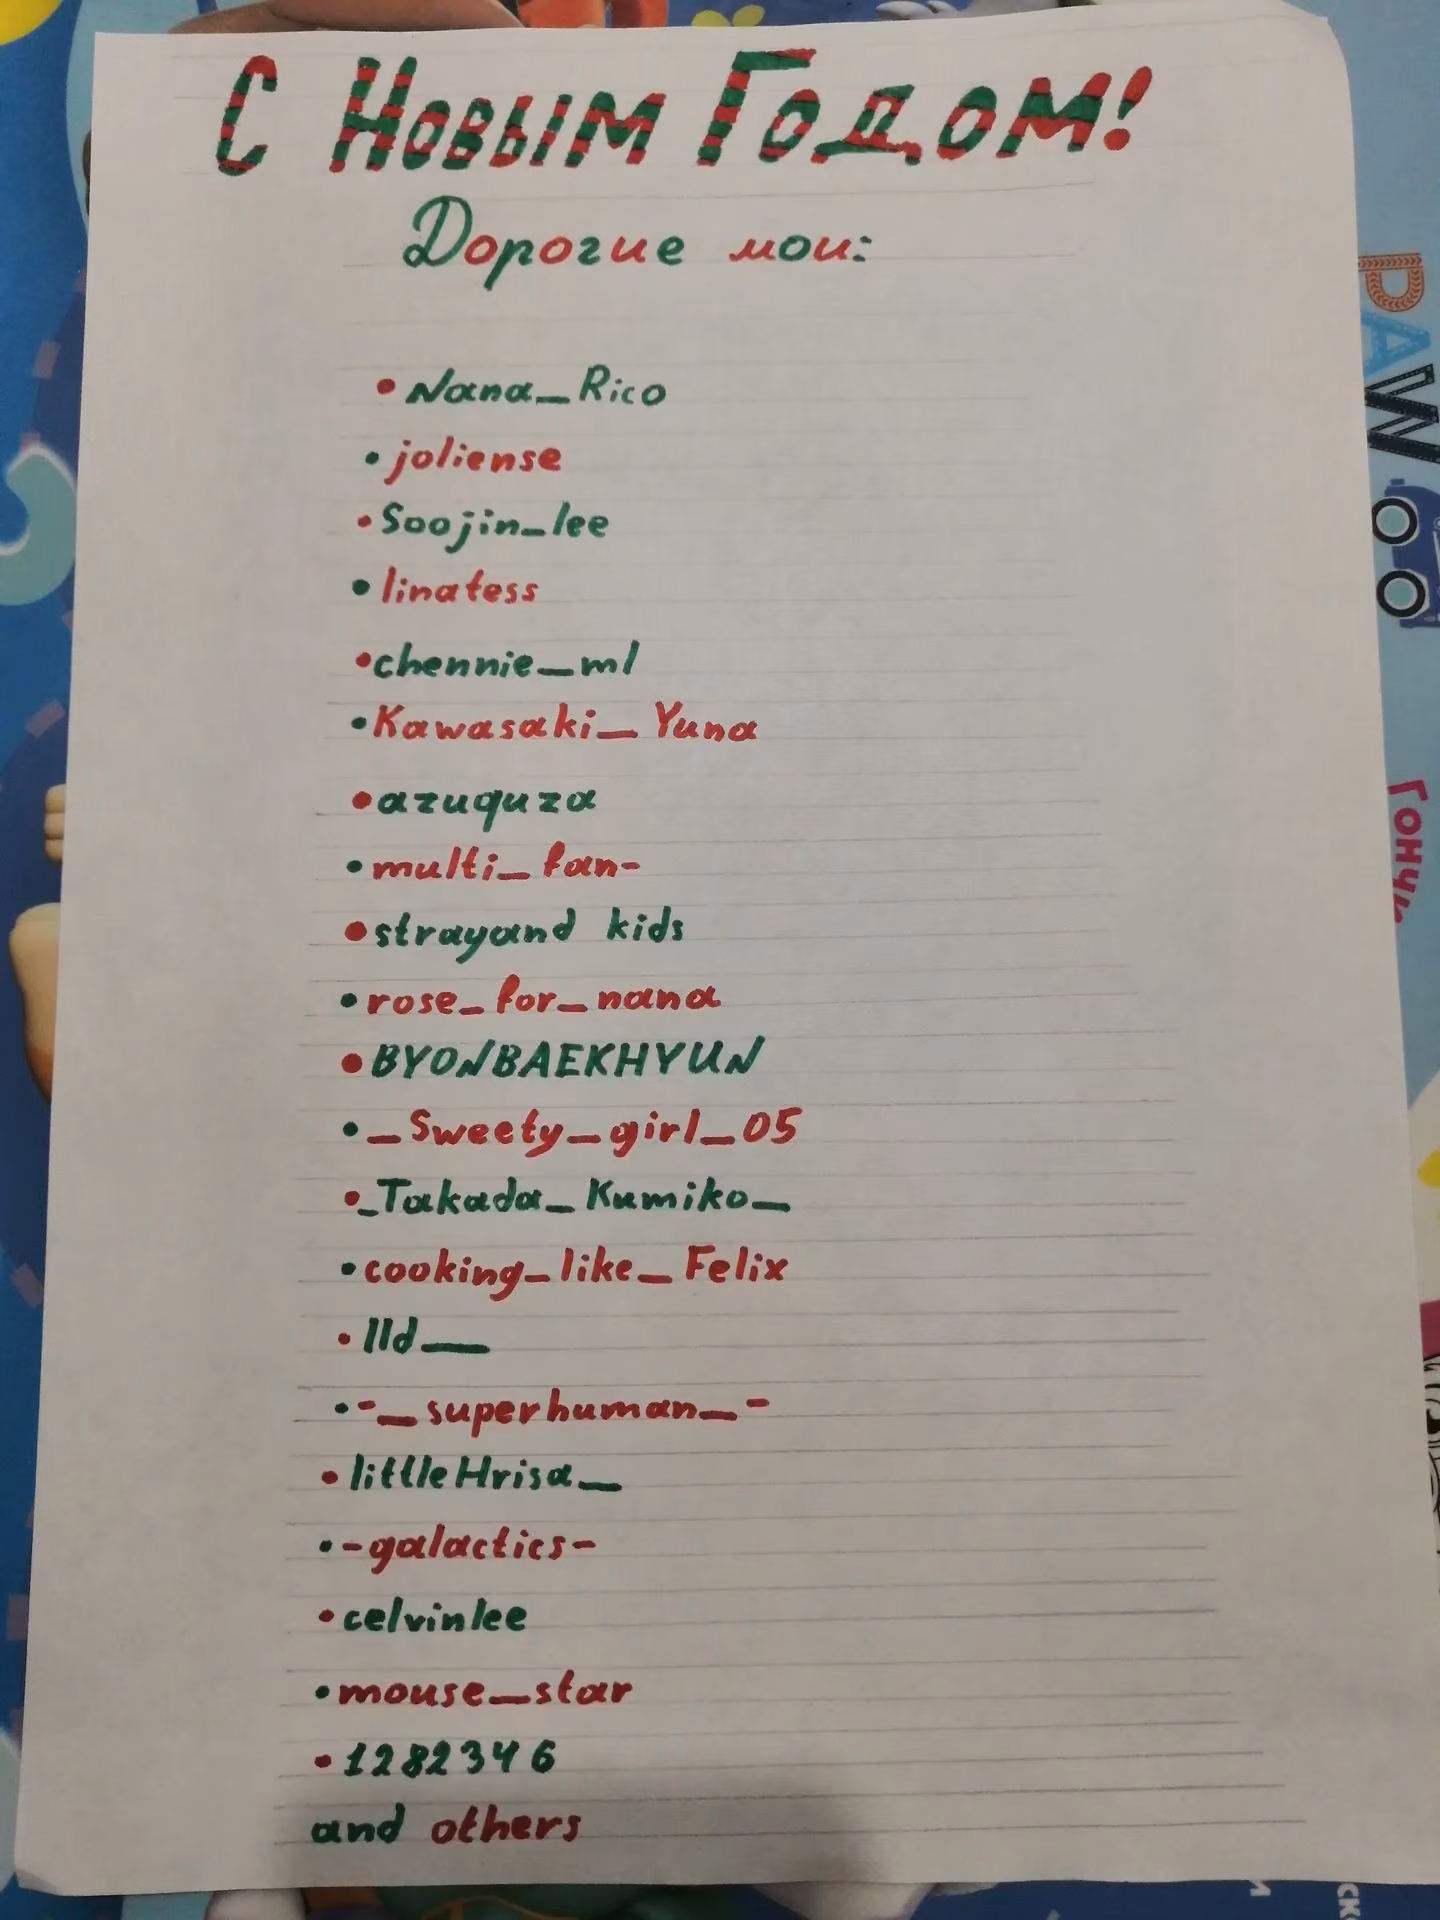 С Новым Годом!
Дорогие мои:
• Nana_Rico
• joliense
• Soojin_lee
• linatess
• chennie_ml
• Kawasaki_Yuna
• azuquza
• multi_fan-
• strayand kids
• rose_for_nana
• BYONBAEKHYUN
• _Sweety_girl_05
• _Takada_Kumiko_
• cooking_like_Felix
• lld__
• -_superhuman_-
• littleHrisa_
• -galactics-
• celvinlee
• mouse_star
• 1282346
and others
PAW